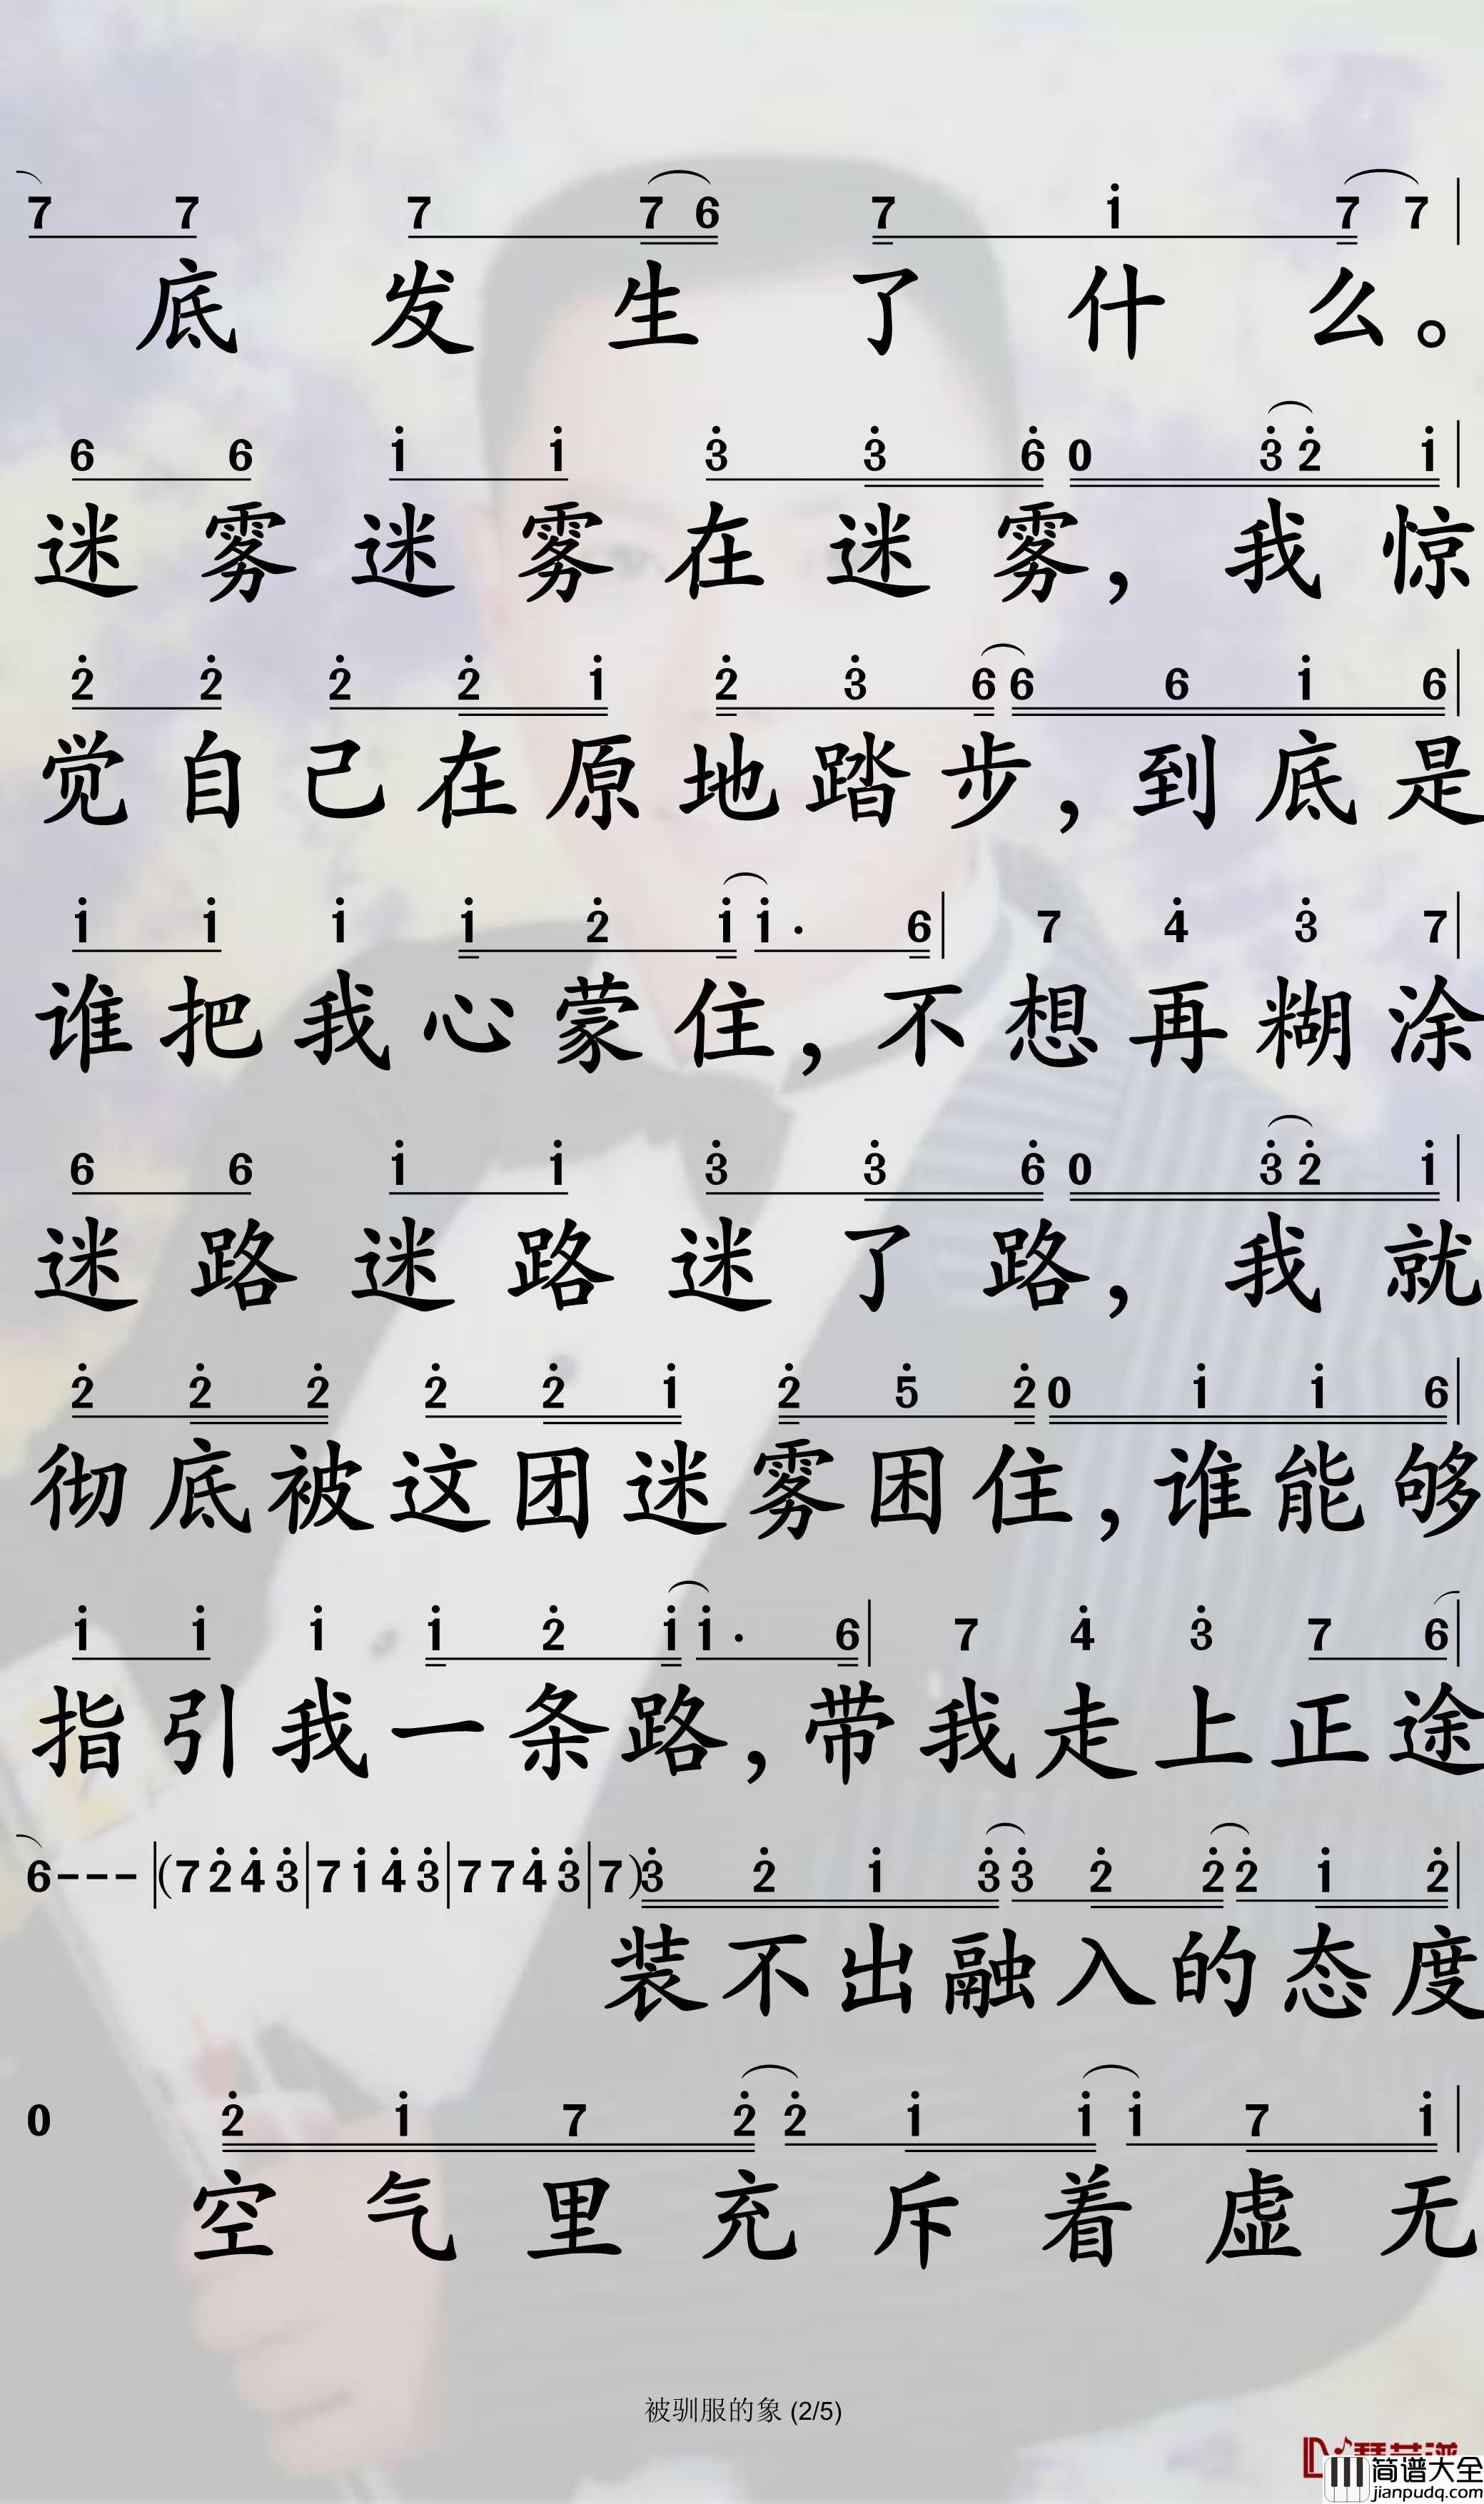 7 7 7 7 6 7 i 7 7 |
底 发 生 了 什 么。
6 6 i i 3̇ 3̇ 6̇ 0 3̇ 2̇ i |
迷 雾 迷 雾 在 迷 雾， 我 惊
2̇ 2̇ 2̇ 2̇ i 2̇ 3̇ 6 6 6 i 6 |
觉 自 己 在 原 地 踏 步，到 底 是
i i i i 2̇ i i · 6 | 7 4̇ 3̇ 7 |
谁 把 我 心 蒙 住，不 想 再 糊 涂
6 6 i i 3̇ 3̇ 6̇ 0 3̇ 2̇ i |
迷 路 迷 路 迷 了 路， 我 就
2̇ 2̇ 2̇ 2̇ 2̇ i 2̇ 5̇ 2̇ 0 i i 6 |
彻 底 被 这 团 迷 雾 困 住，谁 能 够
i i i i 2̇ i i · 6 | 7 4̇ 3̇ 7 6 |
指 引 我 一 条 路，带 我 走 上 正 途
6 - - - | (7 2̇ 4̇ 3̇ | 7 i 4̇ 3̇ | 7 7 4̇ 3̇ | 7) 3̇ 2̇ i 3̇ 3̇ 2̇ 2̇ 2̇ i 2̇ |
装 不 出 融 入 的 态 度
0 2̇ i 7 2̇ 2̇ i i i 7 i |
空 气 里 充 斥 着 虚 无
被驯服的象 (2/5)
简谱大全
jianpudq.com